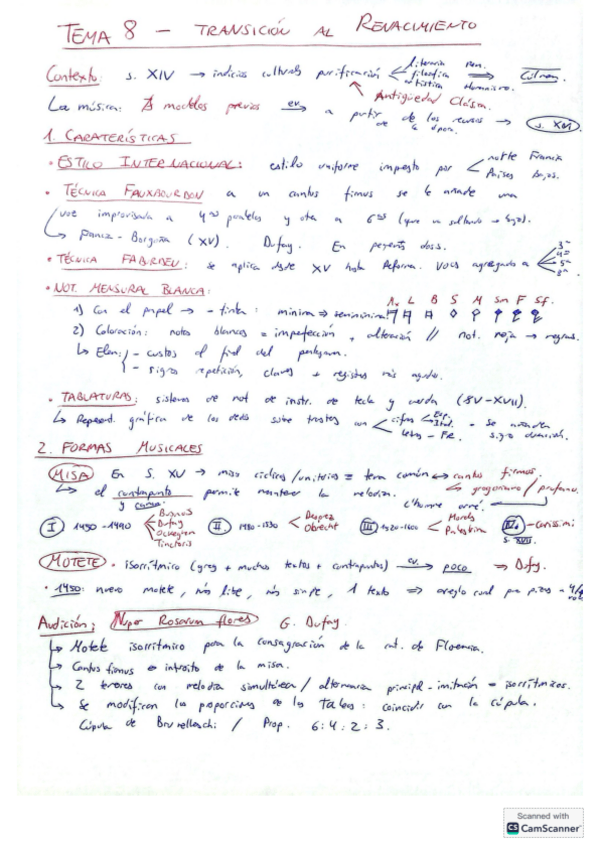 TEMA 8 - TRANSICIÓN AL RENACIMIENTO
Contexto: s. XIV → indicios culturales purificación literaria filosófica artística
Antigüedad Clásica.
La música: ∄ modelos previos ev. → a partir de los recursos de la época → s. XVI
1. CARATERÍSTICAS
• ESTILO INTERNACIONAL: estilo uniforme impuesto por norte Francia Países Bajos.
• TÉCNICA FAUXBOURDON a un cantus firmus se le añade una
voz improvisada a 4as paralelas y otra a 6as
Francia - Borgoña (XV). Dufay. En pequeñas dosis.
• TÉCNICA FABURDEN: se aplica desde XV hasta Reforma. Voces agregadas a 3ª 4ª 5ª 8ª
• NOT. MENSURAL BLANCA: Mx L B S M Sm F Sf.
1) Con el papel → - tinta: mínima → semimínima
2) Coloración: notas blancas = imperfección + alteración // not. roja → negras.
↳ Elem: - custos al final del pentagrama.
- signos repetición, claves + registros más agudos.
• TABLATURAS: sistemas de not de instr. de tecla y cuerda (XV-XVII).
↳ Represent. gráfica de los dedos sobre trastes con cifras Esp. Ital. letras - FR. - se añaden signos duración.
2. FORMAS MUSICALES
MISA En S. XV → misa cíclicas/unitarias = tema común ↔ cantus firmus.
↳ el contrapunto y canon permite mantener la melodía. gregoriano / profano.
L'homme armé.
I 1430-1490 Busnois Dufay Ockeghem Tinctoris II 1480-1530 Desprez Obrecht III 1520-1600 Morales Palestrina IV - Carissimi s. XVII
MOTETE • isorrítmico (greg + muchos textos + contrapuntos) ev. → poco ⇒ Dufay.
• 1450: nuevo motete, más libre, más simple, 1 texto ⇒ arreglo coral para piezas a 4/5
Audición: Nuper Rosarum flores G. Dufay.
↳ Motete isorrítmico para la consagración de la cat. de Florencia.
↳ Cantus firmus = introito de la misa.
↳ 2 tenores con melodía simultánea / alternancia principal-imitación = isorrítmicos.
↳ Se modifican las proporciones de las taleas: coincidir con la cúpula.
Cúpula de Brunelleschi / Prop. 6:4:2:3.
Scanned with
CS CamScanner